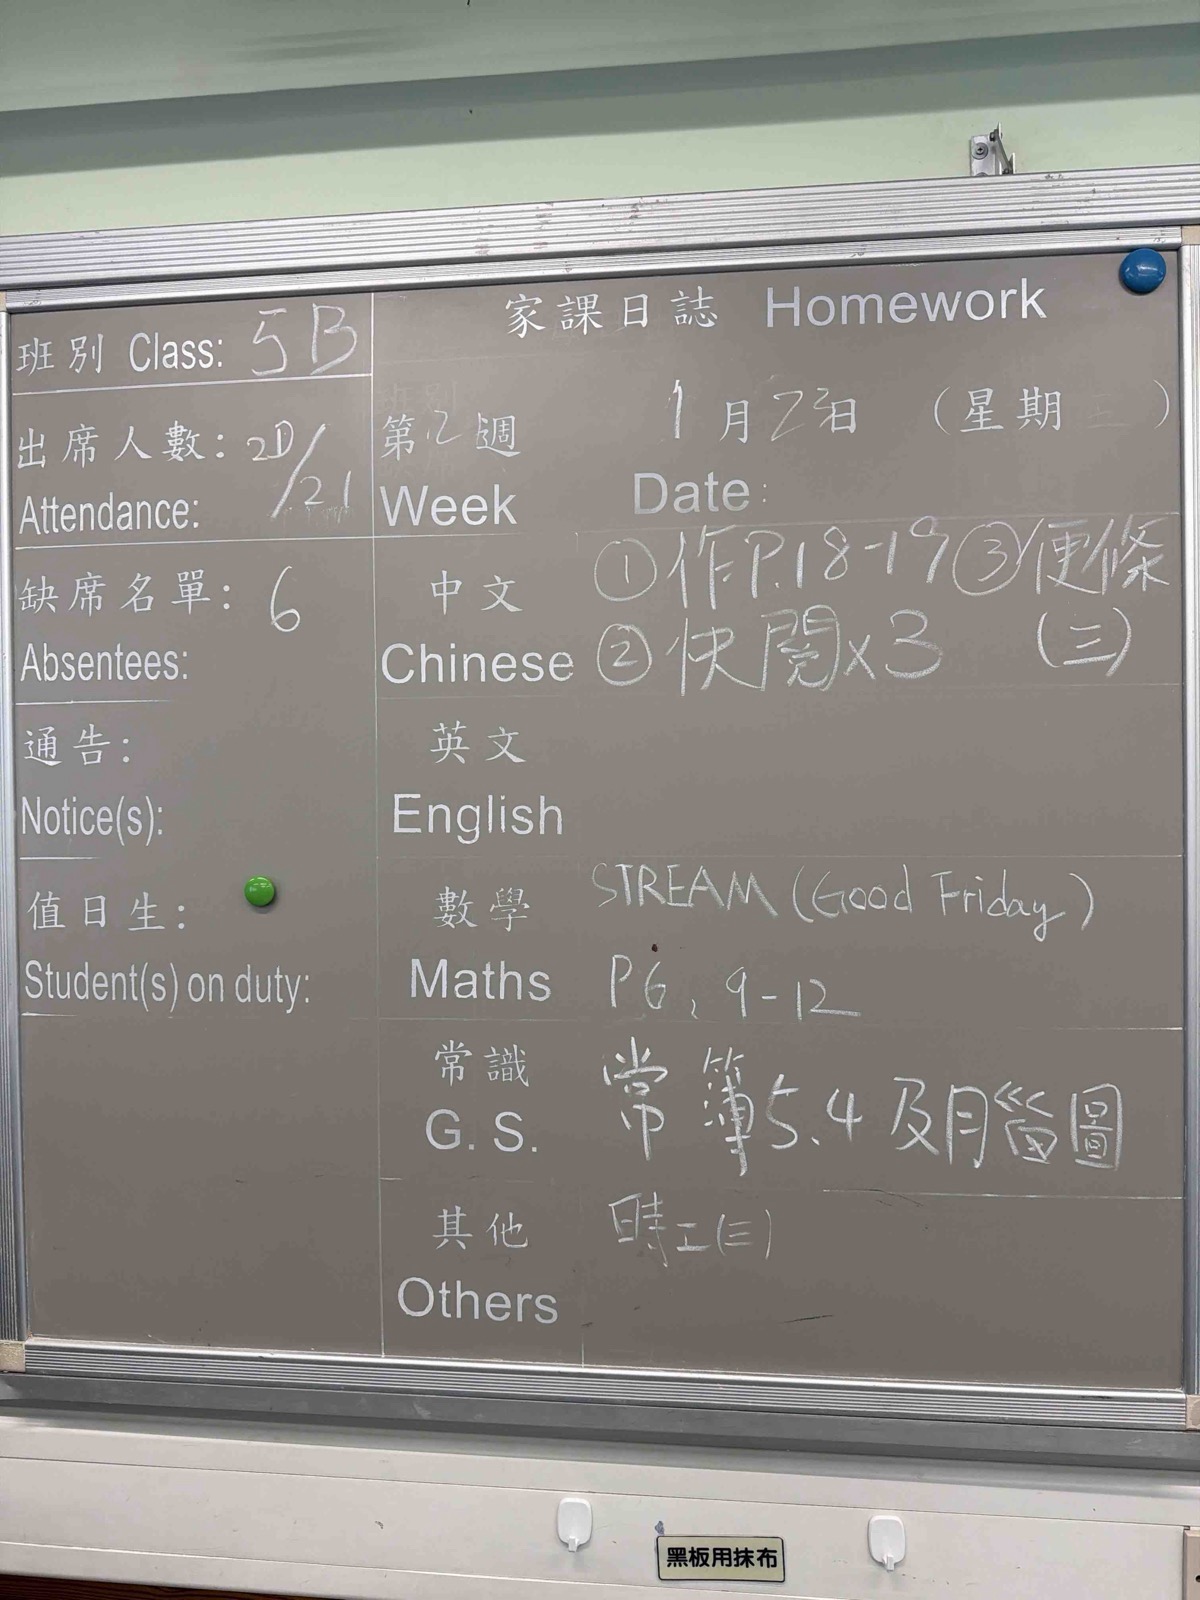 班別 Class: 5B
出席人數: 20/21
Attendance:
缺席名單: 6
Absentees:
通告:
Notice(s):
值日生:
Student(s) on duty:
家課日誌 Homework
第2週 1月23日 (星期 )
Week Date:
中文 ①作P.18-19 ③便條
Chinese ②快閱x3 (三)
英文
English
數學 STREAM (Good Friday)
Maths P6, 9-12
常識 常簿5.4及月腦圖
G. S.
其他 時工(三)
Others
黑板用抹布